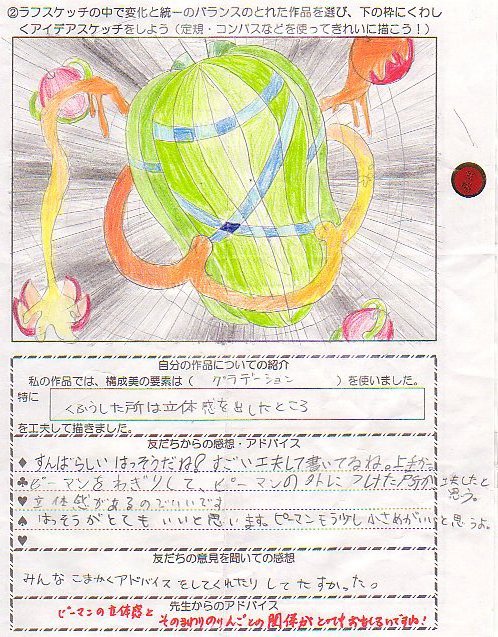 ②ラフスケッチの中で変化と統一のバランスのとれた作品を選び、下の枠にくわし
くアイデアスケッチをしよう（定規・コンパスなどを使ってきれいに描こう！）
自分の作品についての紹介
私の作品では、構成美の要素は（ グラデーション ）を使いました。
特に くふうした所は立体感を出したところ
を工夫して描きました。
友だちからの感想・アドバイス
♦ すんばらしい はっそうだね！すごい工夫して書いてるね。上手だ
♣ ピーマンをわぎりして、ピーマンの外につけた所が工夫したと
思う。
♥ 立体感があるのでいいです
♠ はっそうがとても いいと思います。ピーマンもう少し小さめがいいと思うよ。
♥
友だちの意見を聞いての感想
みんな こまかくアドバイスをしてくれたり してたすかった。
先生からのアドバイス
ピーマンの立体感と
そのまわりのりんごとの関係がとてもおもしろいですね！